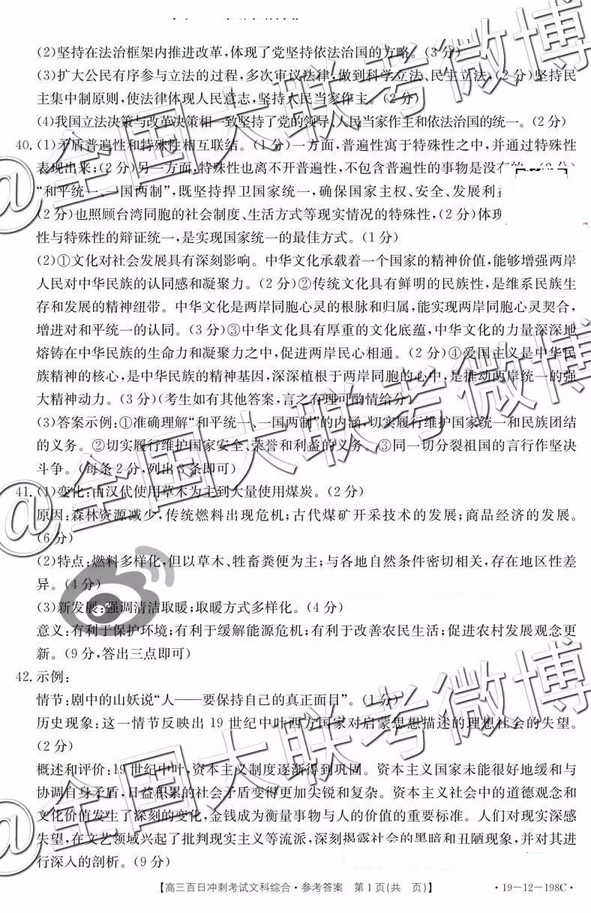 (2)坚持在法治框架内推进改革,体现了党坚持依法治国的方略。(3分)
(3)扩大公民有序参与立法的过程,多次审议法律,做到科学立法、民主立法,(2分)坚持民
主集中制原则,使法律体现人民意志,坚持人民当家作主。(2分)
(4)我国立法决策与改革决策相一致坚持了党的领导、人民当家作主和依法治国的统一。(2分)
40.(1)矛盾普遍性和特殊性相互联结。(1分)一方面,普遍性寓于特殊性之中,并通过特殊性
表现出来;(2分)另一方面,特殊性也离不开普遍性,不包含普遍性的事物是没有的。(2分)
“和平统一、一国两制”,既坚持捍卫国家统一,确保国家主权、安全、发展利
(2分)也照顾台湾同胞的社会制度、生活方式等现实情况的特殊性,(2分)体现
性与特殊性的辩证统一,是实现国家统一的最佳方式。(1分)
(2)①文化对社会发展具有深刻影响。中华文化承载着一个国家的精神价值,能够增强两岸
人民对中华民族的认同感和凝聚力。(2分)②传统文化具有鲜明的民族性,是维系民族生
存和发展的精神纽带。中华文化是两岸同胞心灵的根脉和归属,能实现两岸同胞心灵契合,
增进对和平统一的认同。(3分)③中华文化具有厚重的文化底蕴,中华文化的力量深深地
熔铸在中华民族的生命力和凝聚力之中,促进两岸民心相通。(2分)④爱国主义是中华民
族精神的核心,是中华民族的精神基因,深深植根于两岸同胞的心中,是推动两岸统一的强
大精神动力。(3分)(考生如有其他答案,言之有理可酌情给分)
(3)答案示例:①准确理解“和平统一、一国两制”的内涵,切实履行维护国家统一和民族团结
的义务。②切实履行维护国家安全、荣誉和利益的义务。③同一切分裂祖国的言行作坚决
斗争。(每条2分,列出 条即可)
41.(1)变化:由汉代使用草木为主到大量使用煤炭。(2分)
原因:森林资源减少,传统燃料出现危机;古代煤矿开采技术的发展;商品经济的发展。
(6分)
(2)特点:燃料多样化,但以草木、牲畜粪便为主;与各地自然条件密切相关,存在地区性差
异。(4分)
(3)新发展:强调清洁取暖;取暖方式多样化。(4分)
意义:有利于保护环境;有利于缓解能源危机;有利于改善农民生活;促进农村发展观念更
新。(9分,答出三点即可)
42.示例:
情节:剧中的山妖说“人——要保持自己的真正面目”。(1分)
历史现象:这一情节反映出19世纪中叶西方国家对启蒙思想描述的理想社会的失望。
(2分)
概述和评价:19世纪中叶,资本主义制度逐渐得到巩固。资本主义国家未能很好地缓和与
协调自身矛盾,日益积累的社会矛盾变得更加尖锐和复杂。资本主义社会中的道德观念和
文化价值发生了深刻的变化,金钱成为衡量事物与人的价值的重要标准。人们对现实感
失望,在文艺领域兴起了批判现实主义等流派,深刻揭露社会的黑暗和丑陋现象,并对其进
行深入的剖析。(9分)
【高三百日冲刺考试文科综合·参考答案 第1页(共 页)】 ·19-12-198C·
@全国大联考微博
@全国大联考微博
@全国大联考微博